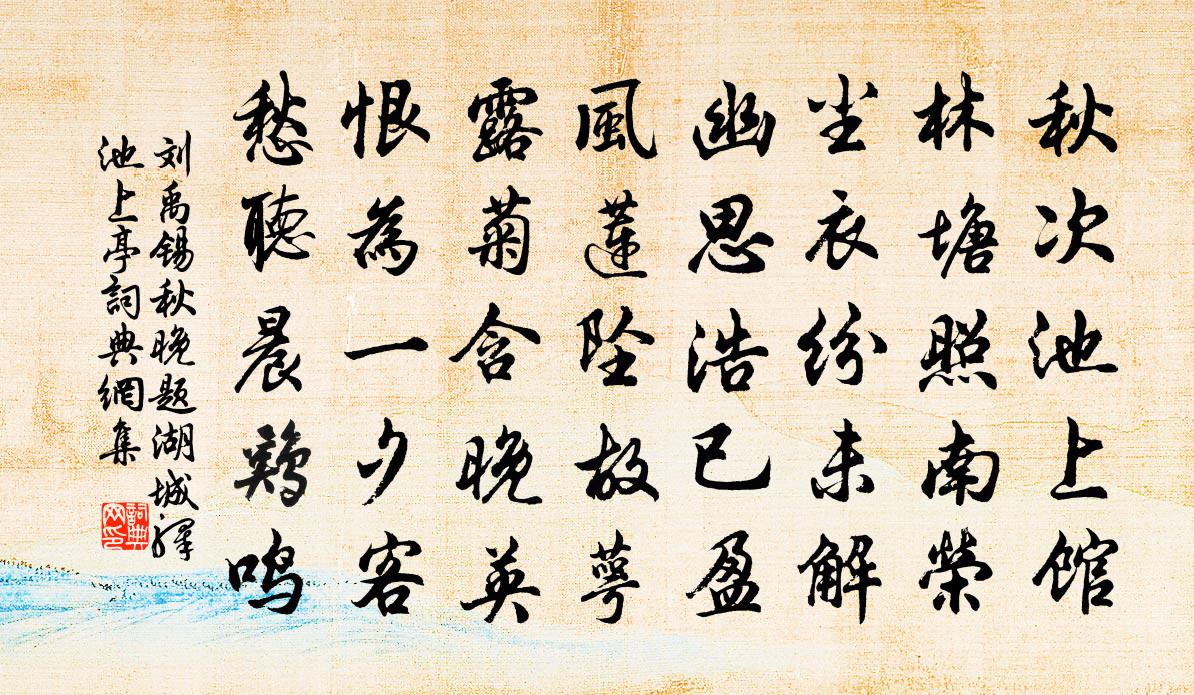 秋次池上館
林塘照南榮
尘衣纷未解
幽思浩已盈
風蓮坠故萼
露菊含晚英
恨為一夕客
愁聽晨鷄鸣
刘禹锡秋晚题湖城驛
池上亭詞典網集
詞典
网印